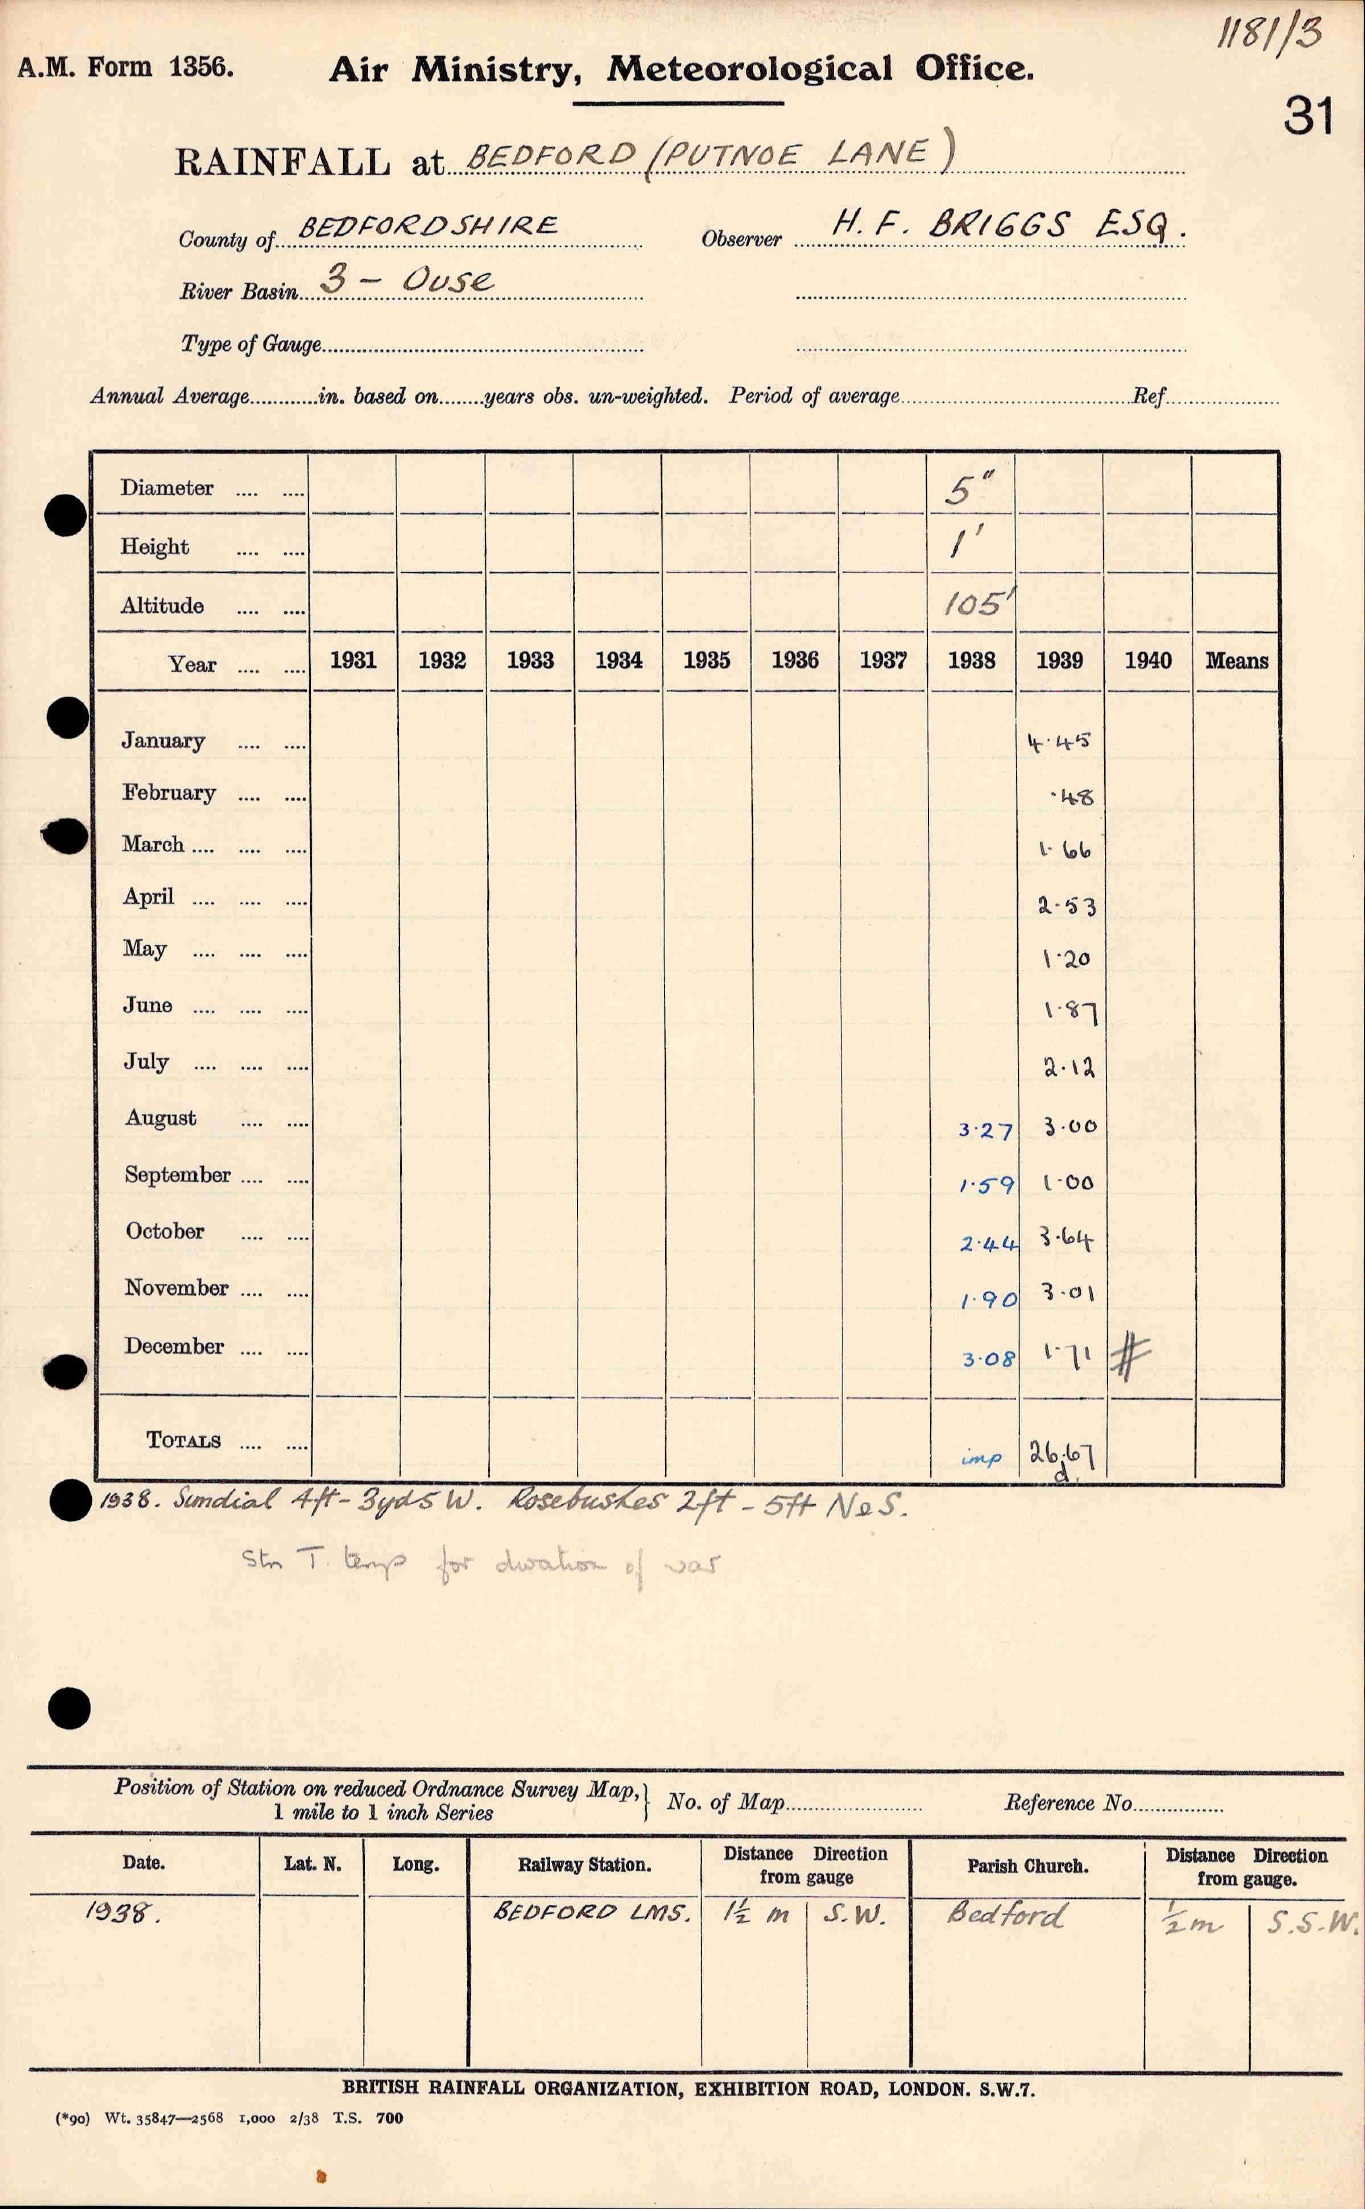 1181/3
A.M. Form 1356. Air Ministry, Meteorological Office.
31
RAINFALL at BEDFORD (PUTNOE LANE)
County of BEDFORDSHIRE Observer H. F. BRIGGS ESQ.
River Basin 3 - Ouse
Type of Gauge
Annual Average in. based on years obs. un-weighted. Period of average Ref
Diameter 5"
Height 1'
Altitude 105'
Year 1931 1932 1933 1934 1935 1936 1937 1938 1939 1940 Means
January 4.45
February .48
March 1.66
April 2.53
May 1.20
June 1.87
July 2.12
August 3.27 3.00
September 1.59 1.00
October 2.44 3.64
November 1.90 3.01
December 3.08 1.71 #
TOTALS imp 26.67
d.
1938. Sundial 4ft - 3yds W. Rosebushes 2ft - 5ft N & S.
Stn T. temp for duration of war
Position of Station on reduced Ordnance Survey Map, } No. of Map Reference No
1 mile to 1 inch Series
Date. Lat. N. Long. Railway Station. Distance Direction from gauge Parish Church. Distance Direction from gauge.
1938. BEDFORD LMS. 1½ m S.W. Bedford ½ m S.S.W.
BRITISH RAINFALL ORGANIZATION, EXHIBITION ROAD, LONDON. S.W.7.
(*90) Wt. 35847—2568 1,000 2/38 T.S. 700